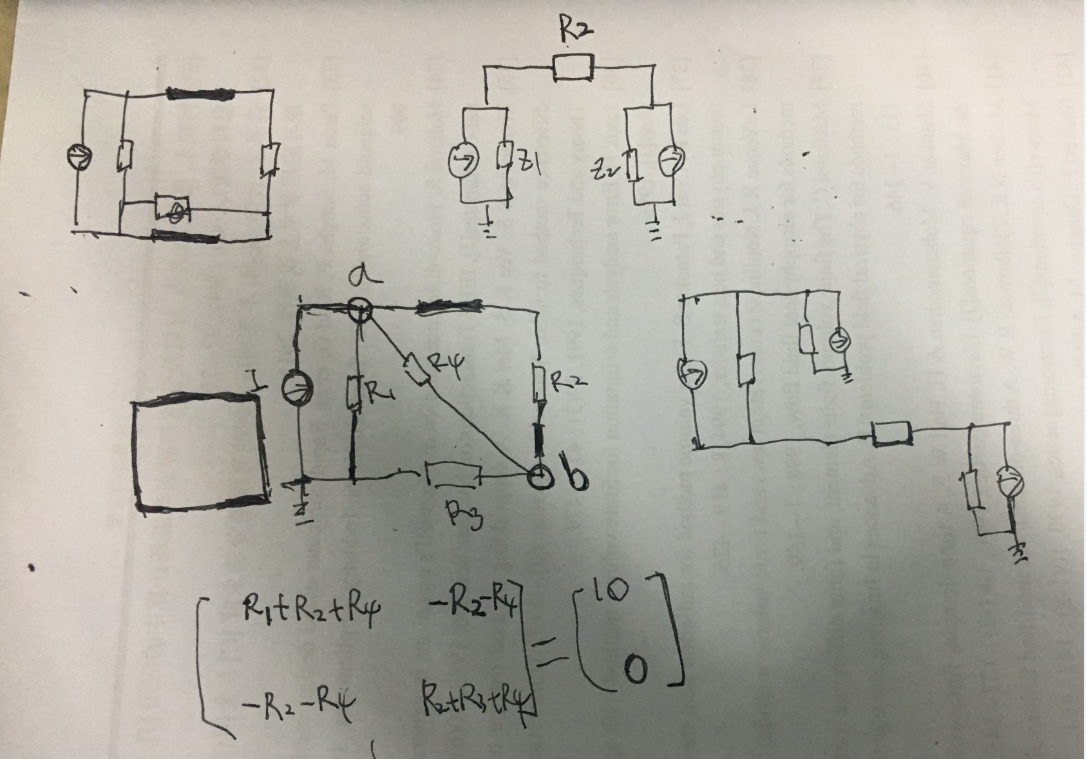 R2
Z1
Z2
a
I
R1
R4
R2
b
R3
R1+R2+R4 -R2-R4
-R2-R4 R2+R3+R4
=
10
0